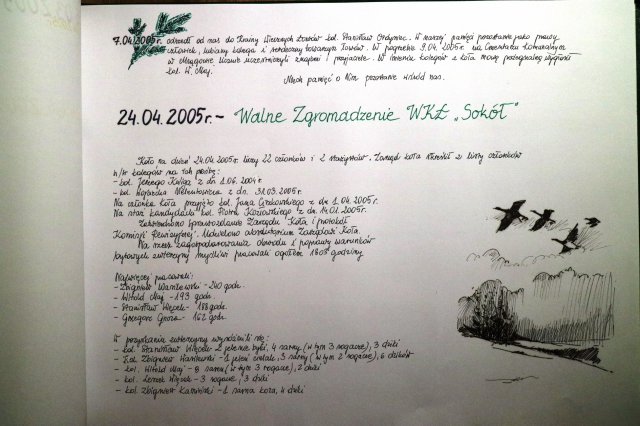 7.04.2005r. odszedł od nas do Krainy Wiecznych Łowów kol. Stanisław Ordyniec. W naszej pamięci pozostanie jako prawy
człowiek, lubiany kolega i serdeczny towarzysz łowów. W pogrzebie 9.04.2005r. na Cmentarzu Komunalnym
w Mrągowie licznie uczestniczyli znajomi i przyjaciele. W imieniu kolegów z koła mowę pożegnalną wygłosił
kol. W. Maj.
Niech pamięć o Nim pozostanie wśród nas.
24.04.2005r. - Walne Zgromadzenie WKŁ „Sokół”
Koło na dzień 24.04.2005r. liczy 22 członków i 2 stażystów. Zarząd koła skreślił z listy członków
n/w kolegów na ich prośbę:
- kol. Jerzego z dn. 1.06.2004r.
- kol. Wojciecha z dn. 31.03.2005r.
Na członka koła przyjęto kol. Jana z dn. 1.04.2005r.
Na staż kandydacki kol. Piotra Kozłowskiego z dn. 14.01.2005r.
Zatwierdzono sprawozdanie Zarządu Koła i protokół
Komisji Rewizyjnej. Udzielono absolutorium Zarządowi Koła.
Na rzecz zagospodarowania obwodu i poprawy warunków
bytowych zwierzyny myśliwi pracowali ogółem 1805 godziny.
Najwięcej pracowali:
- Zbigniew Wasilewski - 240 godz.
- Witold Maj - 193 godz.
- Stanisław Więcek - 188 godz.
- Grzegorz - 162 godz.
W pozyskaniu zwierzyny wyróżnili się:
- kol. Stanisław Więcek - 2 jelenie byki, 4 sarny (w tym 3 rogacze), 3 dziki
- kol. Zbigniew Wasilewski - 1 jeleń cielak, 3 sarny (w tym 2 rogacze), 6 dzików
- kol. Witold Maj - 8 saren (w tym 3 rogacze), 2 dziki
- kol. Leszek Więcek - 3 rogacze, 3 dziki
- kol. Zbigniew Kamiński - 1 sarna koza, 4 dziki